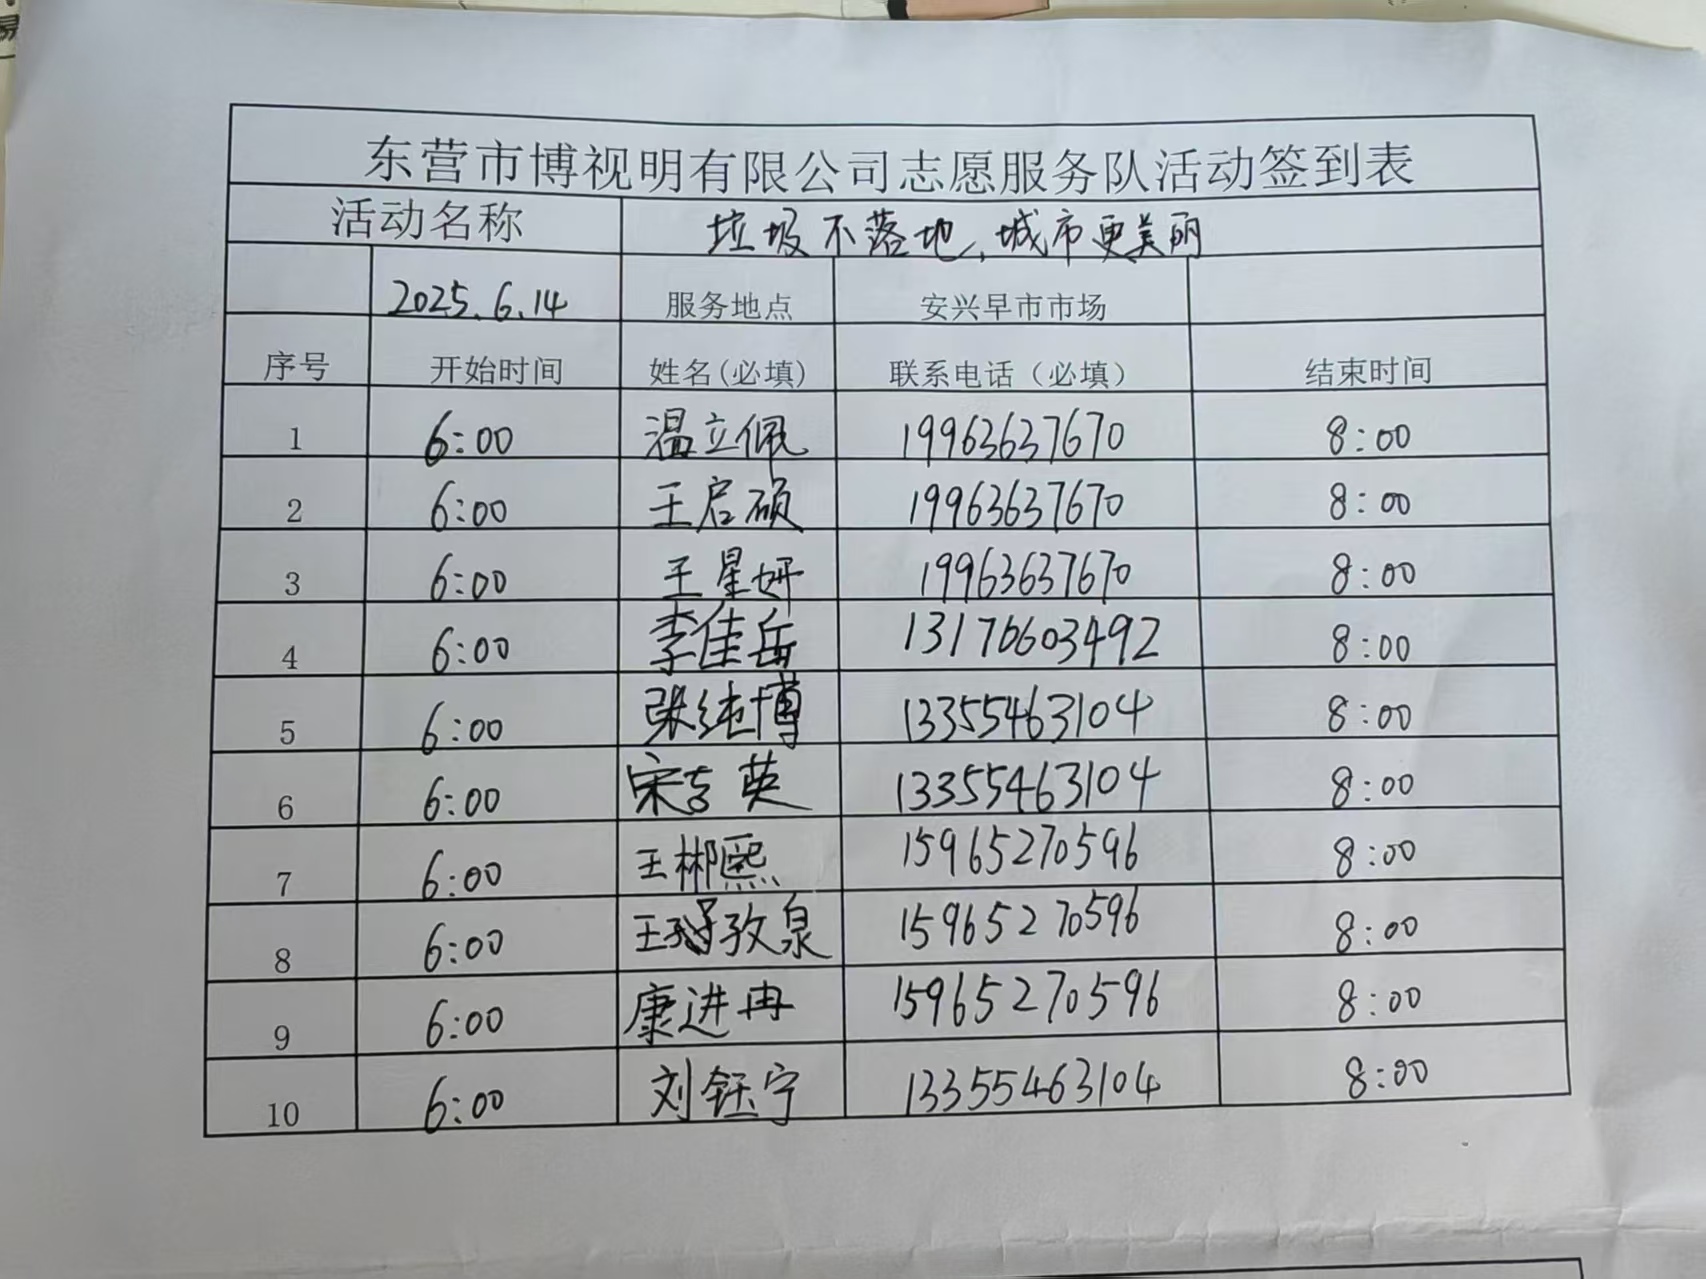 东营市博视明有限公司志愿服务队活动签到表
活动名称 垃圾不落地,城市更美丽
2025.6.14 服务地点 安兴早市市场
序号 开始时间 姓名(必填) 联系电话（必填） 结束时间
1 6:00 温立佩 19963637670 8:00
2 6:00 王启硕 19963637670 8:00
3 6:00 王星妍 19963637670 8:00
4 6:00 李佳岳 13176603492 8:00
5 6:00 张纯博 13355463104 8:00
6 6:00 宋吉英 13355463104 8:00
7 6:00 王郴熙 15965270596 8:00
8 6:00 王孜泉 15965270596 8:00
9 6:00 康进冉 15965270596 8:00
10 6:00 刘钰宁 13355463104 8:00